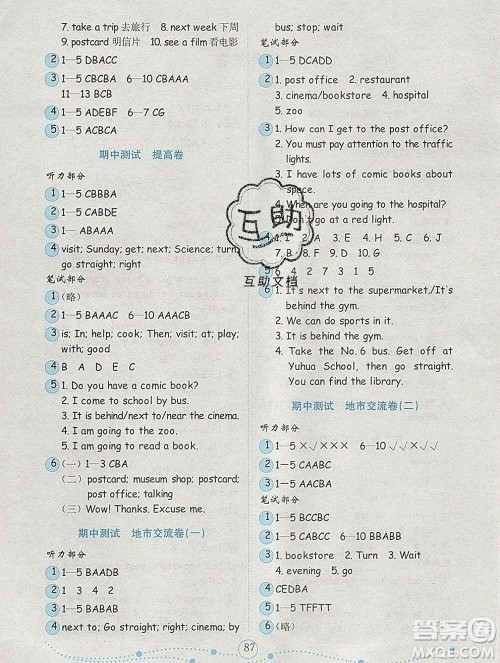 7. take a trip去旅行 8. next week 下周
9. postcard 明信片 10. see a film 看电影
2 1—5 DBACC
3 1—5 CBCBA 6—10 CBAAA
11—13 BCB
4 1—5 ADEBF 6—7 CG
5 1—5 ACBCA
期中测试 提高卷
听力部分
1 1—5 CBBBA
2 1—5 CABDE
3 1—5 ABAAA
4 visit; Sunday; get; next; Science; turn;
go straight; right
笔试部分
1 (略)
2 1—5 BAAAC 6—10 CABAA
3 is; In; help; cook; Then; visit; at; play;
with; good
4 B A D E C
5 1. Do you have a comic book?
2. I come to school by bus.
3. It is behind/next to/near the cinema.
4. I am going to the zoo.
5. I am going to read a book.
6 (一) 1—3 CBA
(二) postcard; museum shop; postcard;
post office; talking
(三) Wow! Thanks. Excuse me.
期中测试 地市交流卷(一)
听力部分
1 1—5 BAADB
2 1 3 4 2
3 1—5 BABCB
4 next to; Go straight; right; cinema; by
bus; stop; wait
笔试部分
1 1—5 DCADD
2 1. post office 2. restaurant
3. cinema/bookstore 4. hospital
5. zoo
3 1. How can I get to the post office?
2. You must pay attention to the traffic
lights.
3. I have lots of comic books about
space.
4. When are you going to the hospital?
5. Don't go at a red light.
4 1. I 2. A 3. J 4. C 5. E 6. H
7. B 8. F 9. D 10. G
5 6 4 2 1 3 5 7
6 1. It's next to the supermarket./It's
behind the gym.
2. We can do sports in it.
3. It's behind the gym.
4. Take the No.6 bus. Get off at
Yuhua School, then go straight.
You can find the library.
期中测试 地市交流卷(二)
听力部分
1 1—5 ×√××× 6—10 √√×√×
2 1—5 CAABC
3 1—5 CABAC
笔试部分
1 1—5 BCCBC
2 1—5 CBACC 6—10 BBABB
3 1. bookstore 2. Turn 3. Wait
4. evening 5. go
4 CEDBA
5 1—5 TFFTT
6 (略)
互助
互助文档
87
答案圈
MXQE.COM